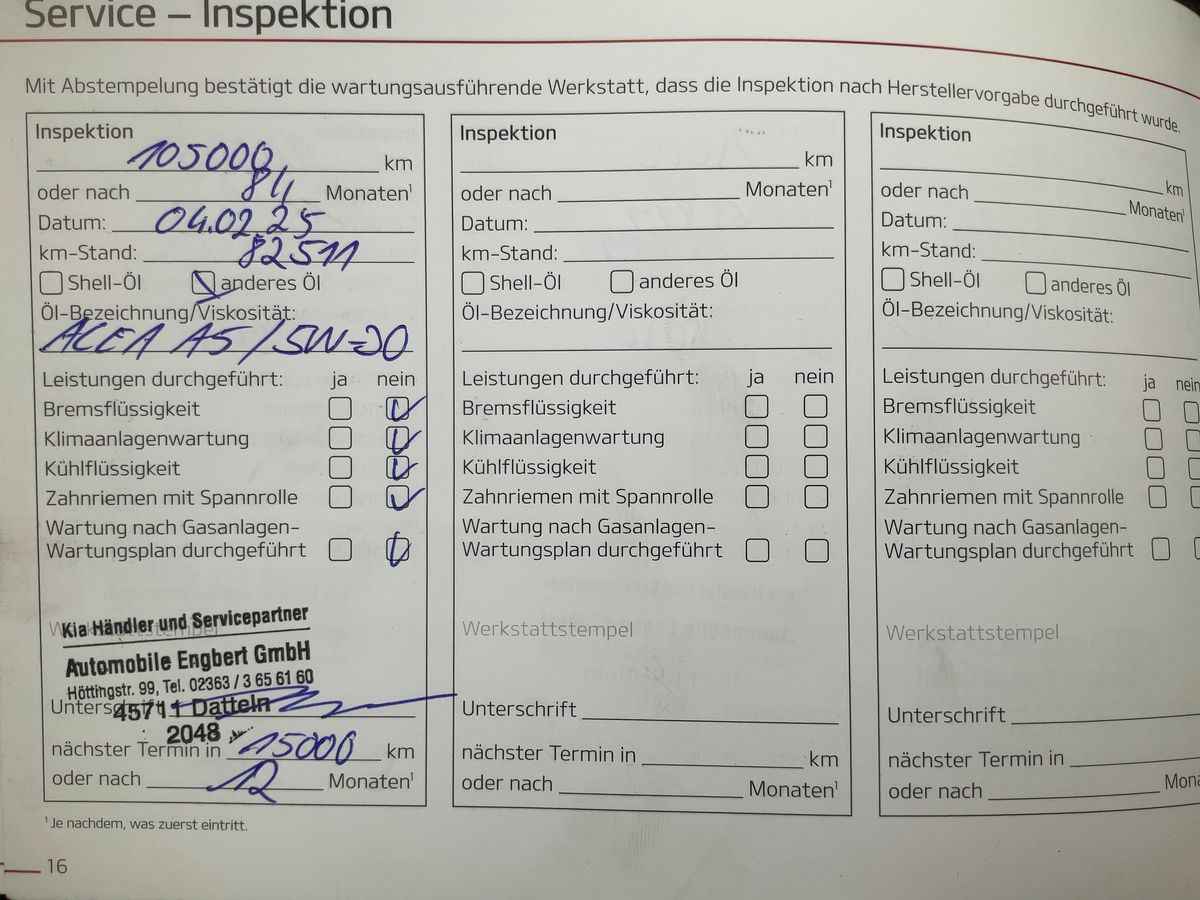 Service – Inspektion
Mit Abstempelung bestätigt die wartungsausführende Werkstatt, dass die Inspektion nach Herstellervorgabe durchgeführt wurde.
Inspektion
105000 km
oder nach 84 Monaten¹
Datum: 04.02.25
km-Stand: 82511
Shell-Öl anderes Öl
Öl-Bezeichnung/Viskosität:
ACEA A5 / 5W-30
Leistungen durchgeführt: ja nein
Bremsflüssigkeit
Klimaanlagenwartung
Kühlflüssigkeit
Zahnriemen mit Spannrolle
Wartung nach Gasanlagen-
Wartungsplan durchgeführt
Werkstattstempel
Kia Händler und Servicepartner
Automobile Engbert GmbH
Höttingstr. 99, Tel. 02363 / 3 65 61 60
45711 Datteln
2048
Unterschrift
nächster Termin in 15000 km
oder nach 12 Monaten¹
Inspektion
km
oder nach Monaten¹
Datum:
km-Stand:
Shell-Öl anderes Öl
Öl-Bezeichnung/Viskosität:
Leistungen durchgeführt: ja nein
Bremsflüssigkeit
Klimaanlagenwartung
Kühlflüssigkeit
Zahnriemen mit Spannrolle
Wartung nach Gasanlagen-
Wartungsplan durchgeführt
Werkstattstempel
Unterschrift
nächster Termin in km
oder nach Monaten¹
Inspektion
km
oder nach Monaten¹
Datum:
km-Stand:
Shell-Öl anderes Öl
Öl-Bezeichnung/Viskosität:
Leistungen durchgeführt: ja nein
Bremsflüssigkeit
Klimaanlagenwartung
Kühlflüssigkeit
Zahnriemen mit Spannrolle
Wartung nach Gasanlagen-
Wartungsplan durchgeführt
Werkstattstempel
Unterschrift
nächster Termin in
oder nach Mona
¹ Je nachdem, was zuerst eintritt.
16